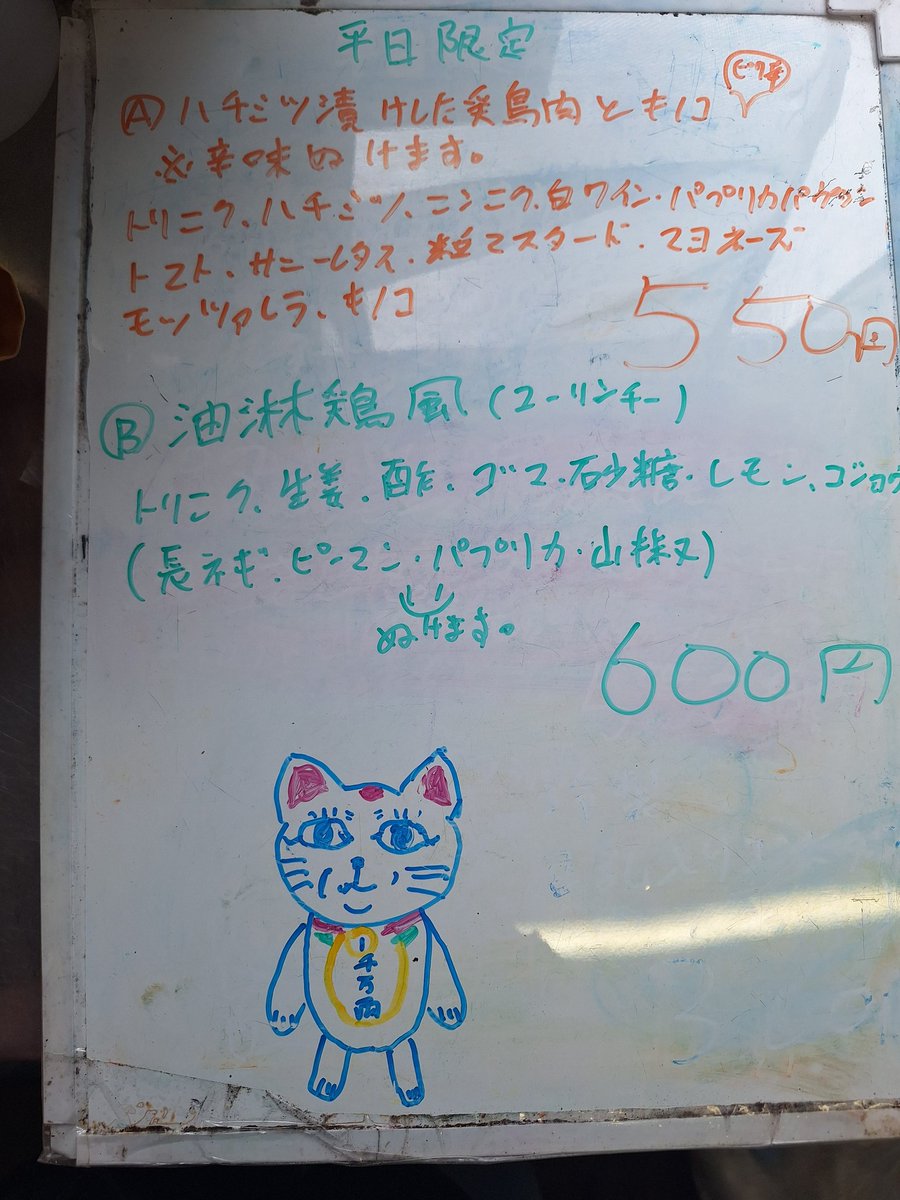 平日限定
Ⓐハチミツ漬けした鶏肉とキノコ
ピリ辛
※辛味ぬけます。
トリニク、ハチミツ、ニンニク、白ワイン・パプリカパウダー
トマト、サニーレタス・粒マスタード・マヨネーズ
モッツァレラ、キノコ
550円
Ⓑ油淋鶏風(ユーリンチー)
トリニク、生姜、酢、ゴマ、砂糖・レモン、コショウ
(長ネギ、ピーマン・パプリカ・山椒)
ぬけます。
600円
一千万両